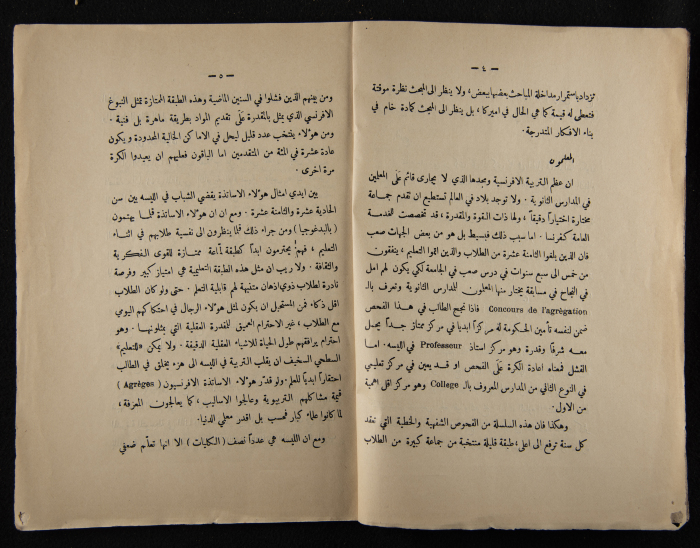 — ٤ —
تزداد باستمرار مداخلة المباحث بعضها ببعض، ولا ينظر الى البحث نظرة موقتة
فتعطى له قيمة كما هي الحال في اميركا، بل ينظر الى البحث كمادة خام في
بناء الافكار المتدرجة.
المعلمون
ان عظم التربية الافرنسية ومجدها الذي لا يجارى قائم على المعلمين
في المدارس الثانوية. ولا توجد بلاد في العالم تستطيع ان تقدم جماعة
مختارة اختياراً دقيقاً، ولها ذات القوة والمقدرة، قد تخصصت للخدمة
العامة كفرنسا. اما سبب ذلك فبسيط بل هو من بعض الجهات صعب
فان الذين بلغوا الثامنة عشرة من الطلاب والذين اتموا التعليم، ينفقون
من خمس الى سبع سنوات في درس صعب في الجامعة لكي يكون لهم امل
في النجاح في مسابقة يختار منها المعلمون للمدارس الثانوية وتعرف بال
Concours de l'agrégation فاذا نجح الطالب في هذا الفحص
ضمن لنفسه تأمين الحكومة له مركزاً ابدياً في مركز ممتاز جداً يحمل
معه شرفاً وقدرة وهو مركز استاذ Professeur في الليسه. اما
الفشل فمعناه اعادة الكرة على الفحص او قد يعين في مركز تعليمي
في النوع الثاني من المدارس المعروف بالـ College وهو مركز اقل اهمية
من الاول.
وهكذا فان هذه السلسلة من الفحوص الشفهية والخطية التي تعقد
كل سنة ترفع الى اعلى، طبقة قليلة منتخبة من جماعة كبيرة من الطلاب
— ٥ —
ومن بينهم الذين فشلوا في السنين الماضية وهذه الطبقة الممتازة تمثل النبوغ
الافرنسي الذي يمثل بالمقدرة على تقديم المواد بطريقة ماهرة بل فنية.
ومن هؤلاء ينتخب عدد قليل ليحل في الاماكن الخالية المحدودة ويكون
عادة عشرة في المئة من المتقدمين اما الباقون فعليهم ان يعيدوا الكرة
مرة اخرى.
بين ايدي امثال هؤلاء الاساتذة يقضي الشباب في الليسه بين سن
الحادية عشرة والثامنة عشرة. ومع ان ان هؤلاء الاساتذة قلما يهتمون
(بالبدغوجيا) ومن جراء ذلك قلما ينظرون الى نفسية طلابهم في اثناء
التعليم، فهم يحترمون ابداً كطبقة لماعة ممتازة للقوى الفكرية
والثقافة. ولا ريب ان مثل هذه الطبقة التعليمية هي امتياز كبير وفرصة
نادرة لطلاب ذوي اذهان متنبهة لهم قابلية التعلم. حتى ولو كان الطلاب
اقل ذكاء فمن المستحيل ان يكون لمثل هؤلاء الرجال في احتكاكهم اليومي
مع الطلاب، غير الاحترام العميق للمقدرة العقلية التي يمثلونها. وهو
احترام يرافقهم طول الحياة للاشياء العقلية الدقيقة. ولا يمكن «للتعليم»
السطحي السخيف ان يقلب التربية في الليسه الى هزء يخلق في الطالب
احتقاراً ابدياً للعلم ولو قدر هؤلاء الاساتذة الافرنسيون (Agrégés)
قيمة مشاكلهم التربيوية وعالجوا الاساليب، كما يعالجون المعرفة،
لما كانوا علماء كبار فحسب بل اقدر معلمي الدنيا.
ومع ان الليسه هي عدداً نصف (الكليات) الا انها تعلم ضعفي